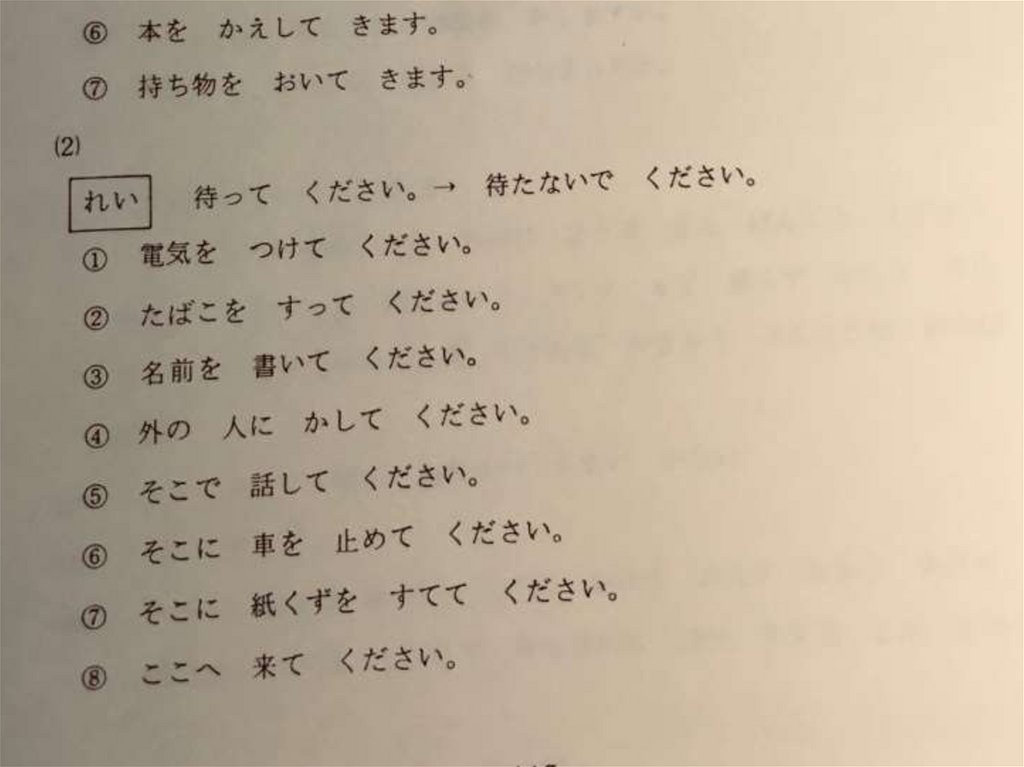 ⑥ 本を かえして きます。
⑦ 持ち物を おいて きます。
(2)
れい 待って ください。→ 待たないで ください。
① 電気を つけて ください。
② たばこを すって ください。
③ 名前を 書いて ください。
④ 外の 人に かして ください。
⑤ そこで 話して ください。
⑥ そこに 車を 止めて ください。
⑦ そこに 紙くずを すてて ください。
⑧ ここへ 来て ください。